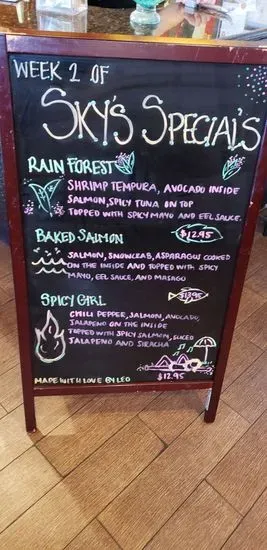 WEEK 2 OF
SKY'S SPECIAL'S
RAIN FOREST
SHRIMP TEMPURA, AVOCADO INSIDE
SALMON, SPICY TUNA ON TOP
TOPPED WITH SPICY MAYO AND EEL SAUCE.
$12.95
BAKED SALMON
SALMON, SNOWCRAB, ASPARAGU COOKED
ON THE INSIDE AND TOPPED WITH SPICY
MAYO, EEL SAUCE, AND MASAGO
$13.95
SPICY GIRL
CHILI PEPPER, SALMON, AVOCADO,
JALAPENO ON THE INSIDE
TOPPED WITH SPICY SALMON, SLICED
JALAPENO AND SIRACHA
$12.95
MADE WITH LOVE BY LEO